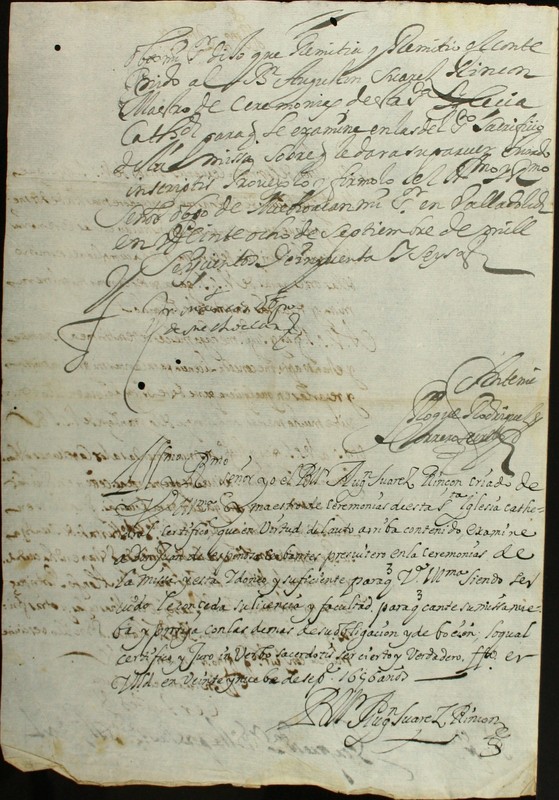 dijo que Remitia y Remitio el conte
nido al Bʳ Augustin Suarez Rincon
Maestro de Ceremonias desta sᵗᵃ Iglecia
Cathᵈˡ para q se examine en las del sᵗᵒ Sacrificio
de la missa, sobre q le dara su parecer jurado
in scriptis Proueyolo y firmolo el Illᵐᵒ y Rᵐᵒ
señor obpo de Mechoacan mi sʳ en Valladolid
en Veinte ocho de Septiembre de mill
Seiscientos y cinquenta y Seys aˢ
Fr Marcos obpo
de Mechoacan
Ante mi
Roque Rodriguez
Illᵐᵒ y Rᵐᵒ
Señor yo el Bʳ Augⁿ Suarez Rincon criado de
V S Illᵐᵃ y maestro de ceremonias desta Sᵗᵃ Iglesia cathe
dral, certifico que en Virtud del auto arriba contenido examine
a Don Juan de espinosa presuitero en la Ceremonias de
la missa y esta Idoneo y suficiente para q V S Illᵐᵃ siendo ser
uido le conceda su licencia y facultad, para q cante su missa nue
ba y prosiga con las demas de su obligacion y de bocion, lo qual
certifico y Juro in Verbo sacerdotis ser cierto y Verdadero, ffᵒ en
Vllid en Veinte y nuebe de sepᵉ 1656 años
Bʳ Augⁿ Suarez Rincon